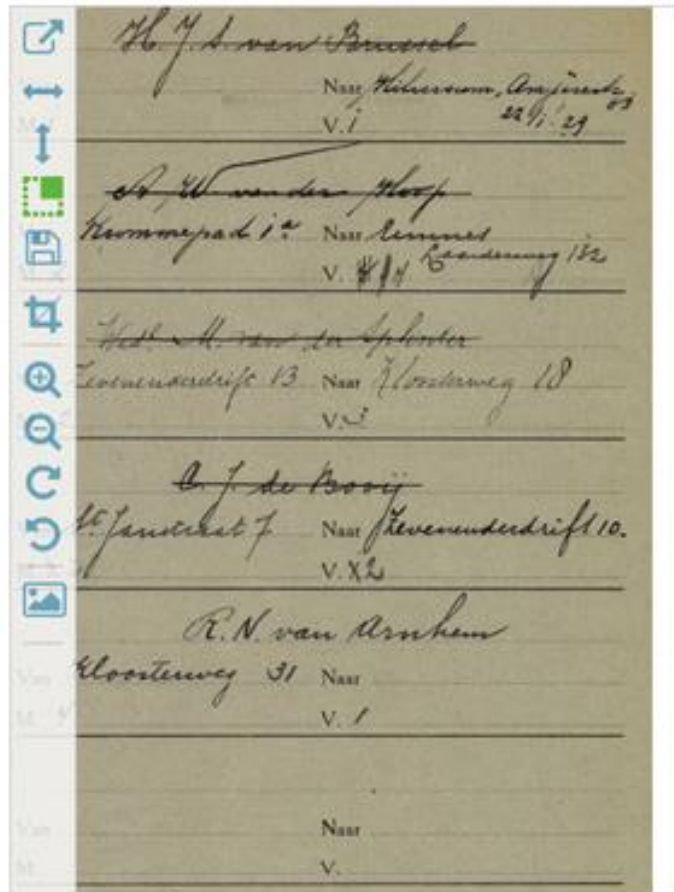 H. J. S. van Brussel
Naar Hilversum,
V. 1 22/1 '29
A W van der Hoop
Krommepad 1a Naar Eemnes
Laarderweg 132
V.
Wed. M. van der Splinter
Zevenenderdrift 13 Naar Kloosterweg 18
V. 3
C. J. de Booij
St. Janstraat 7 Naar Zevenenderdrift 10.
V. X2
R. N. van Arnhem
Van Kloosterweg 31 Naar
M V. 1
Van Naar
M V.